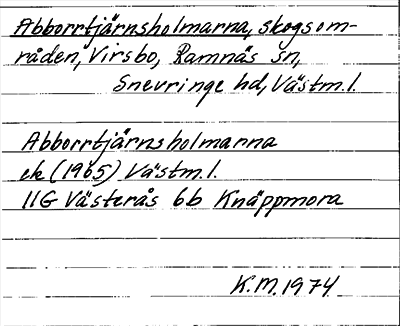 Abborrtjärnsholmarna, skogsom-
råden, Virsbo, Ramnäs sn,
Snevringe hd, Västm.l.
Abborrtjärnsholmarna
ek (1965) Västm.l.
11G Västerås 6b Knäppmora
K.M. 1974